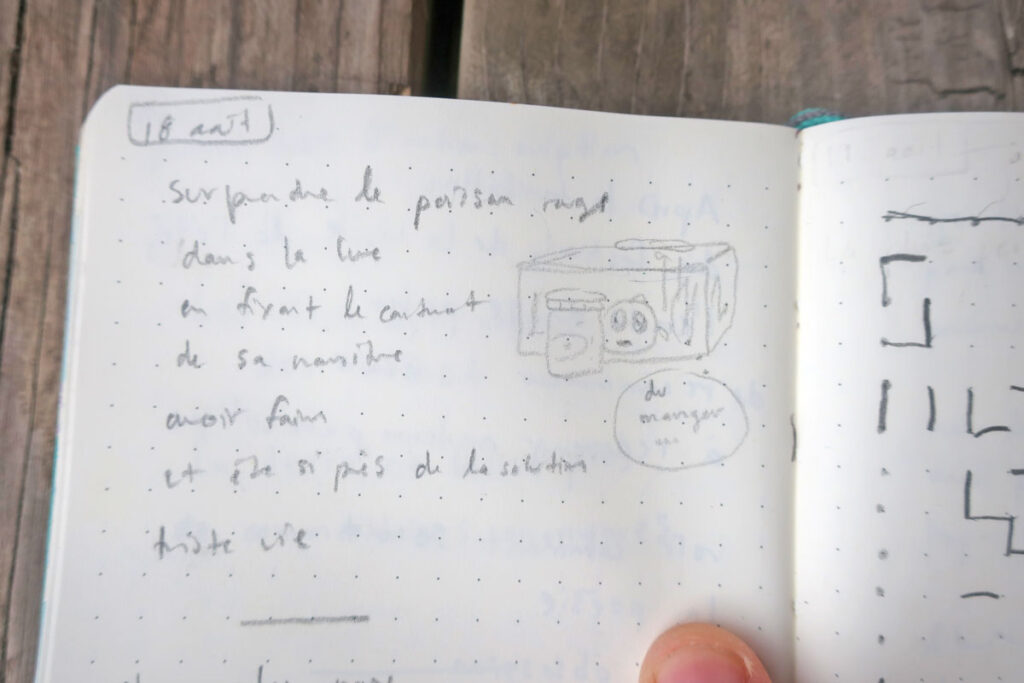 18 août
surprendre le poisson rouge
dans la lune
en fixant le contenant
de sa
avoir faim
et être si près de la solution
triste vie
du
manger
...